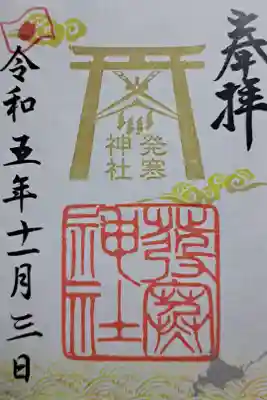 奉拝
発寒
神社
発寒
神社
令和五年十一月三日